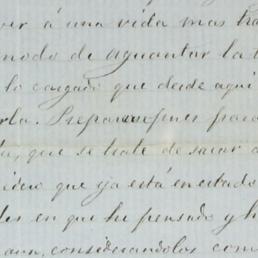 ver á una vida mas tra
modo de aguantar la t
lo cargado que desde aquí
rla. Preparese pues para
que se trate de sacar
que ya está enseñado
des en que he pensado y h
aun, considerandolas com